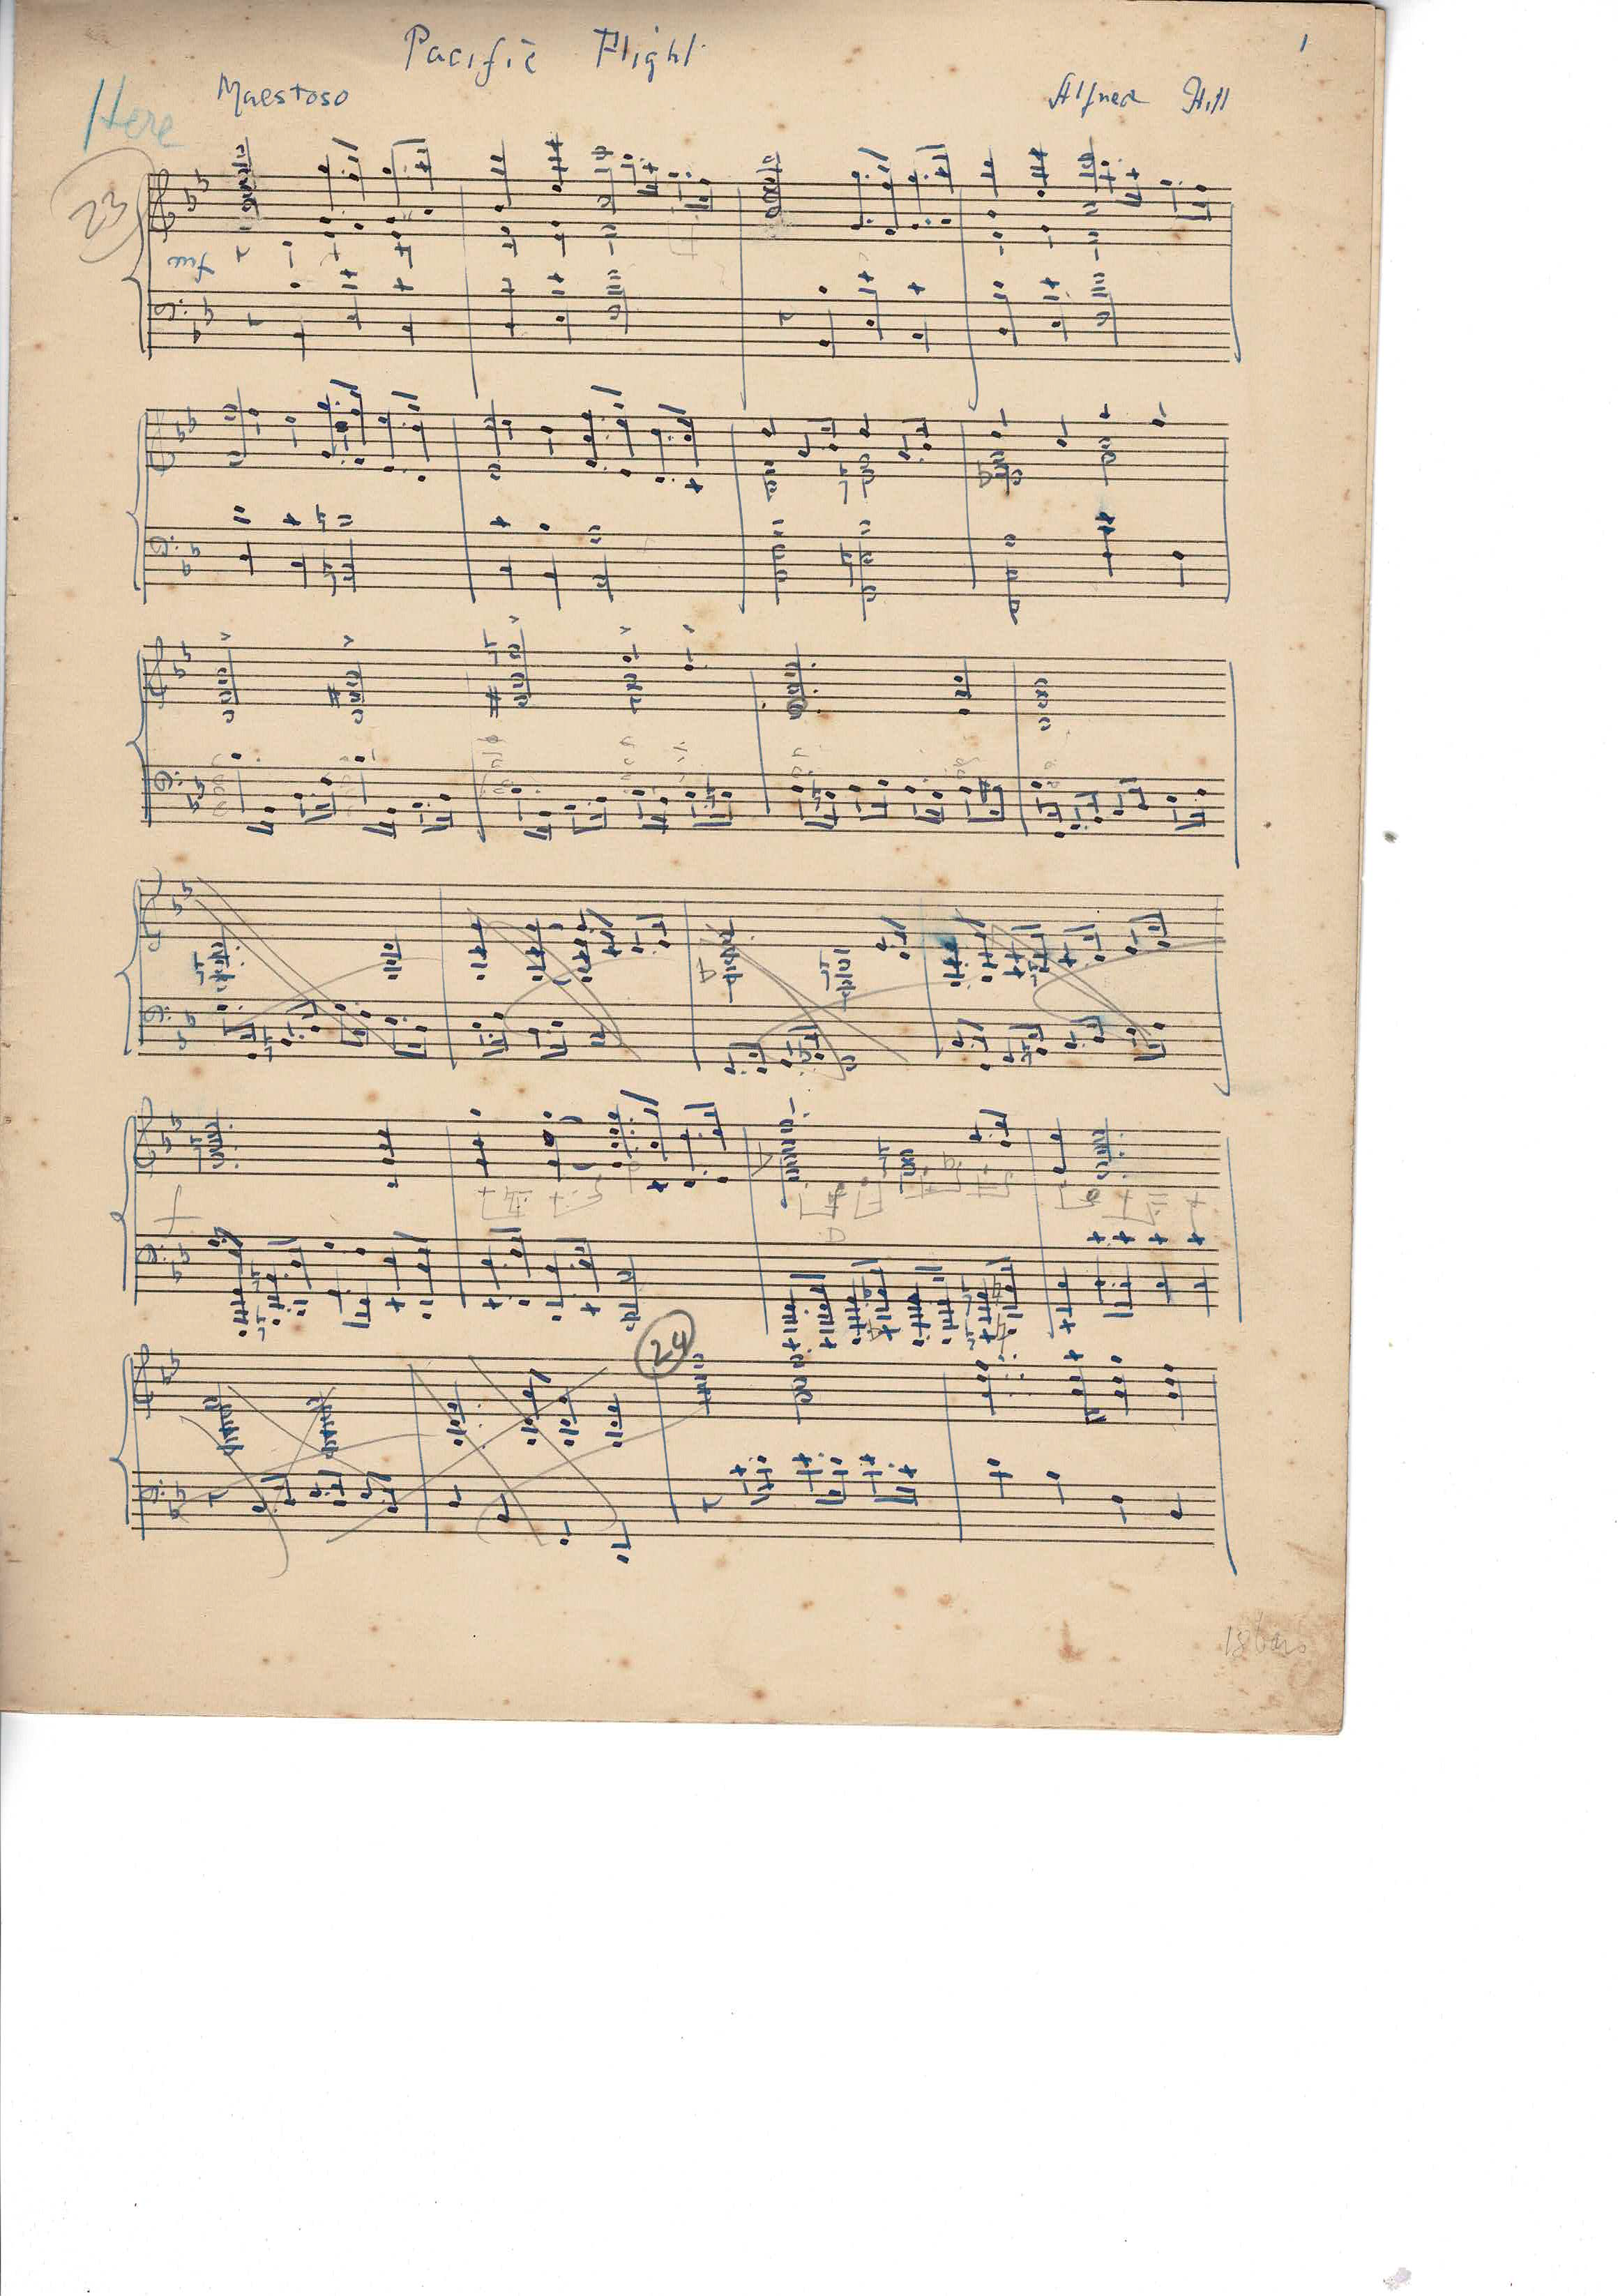 Pacific Flight
1
Here
Maestoso
Alfred Hill
23
f
24
18 bars